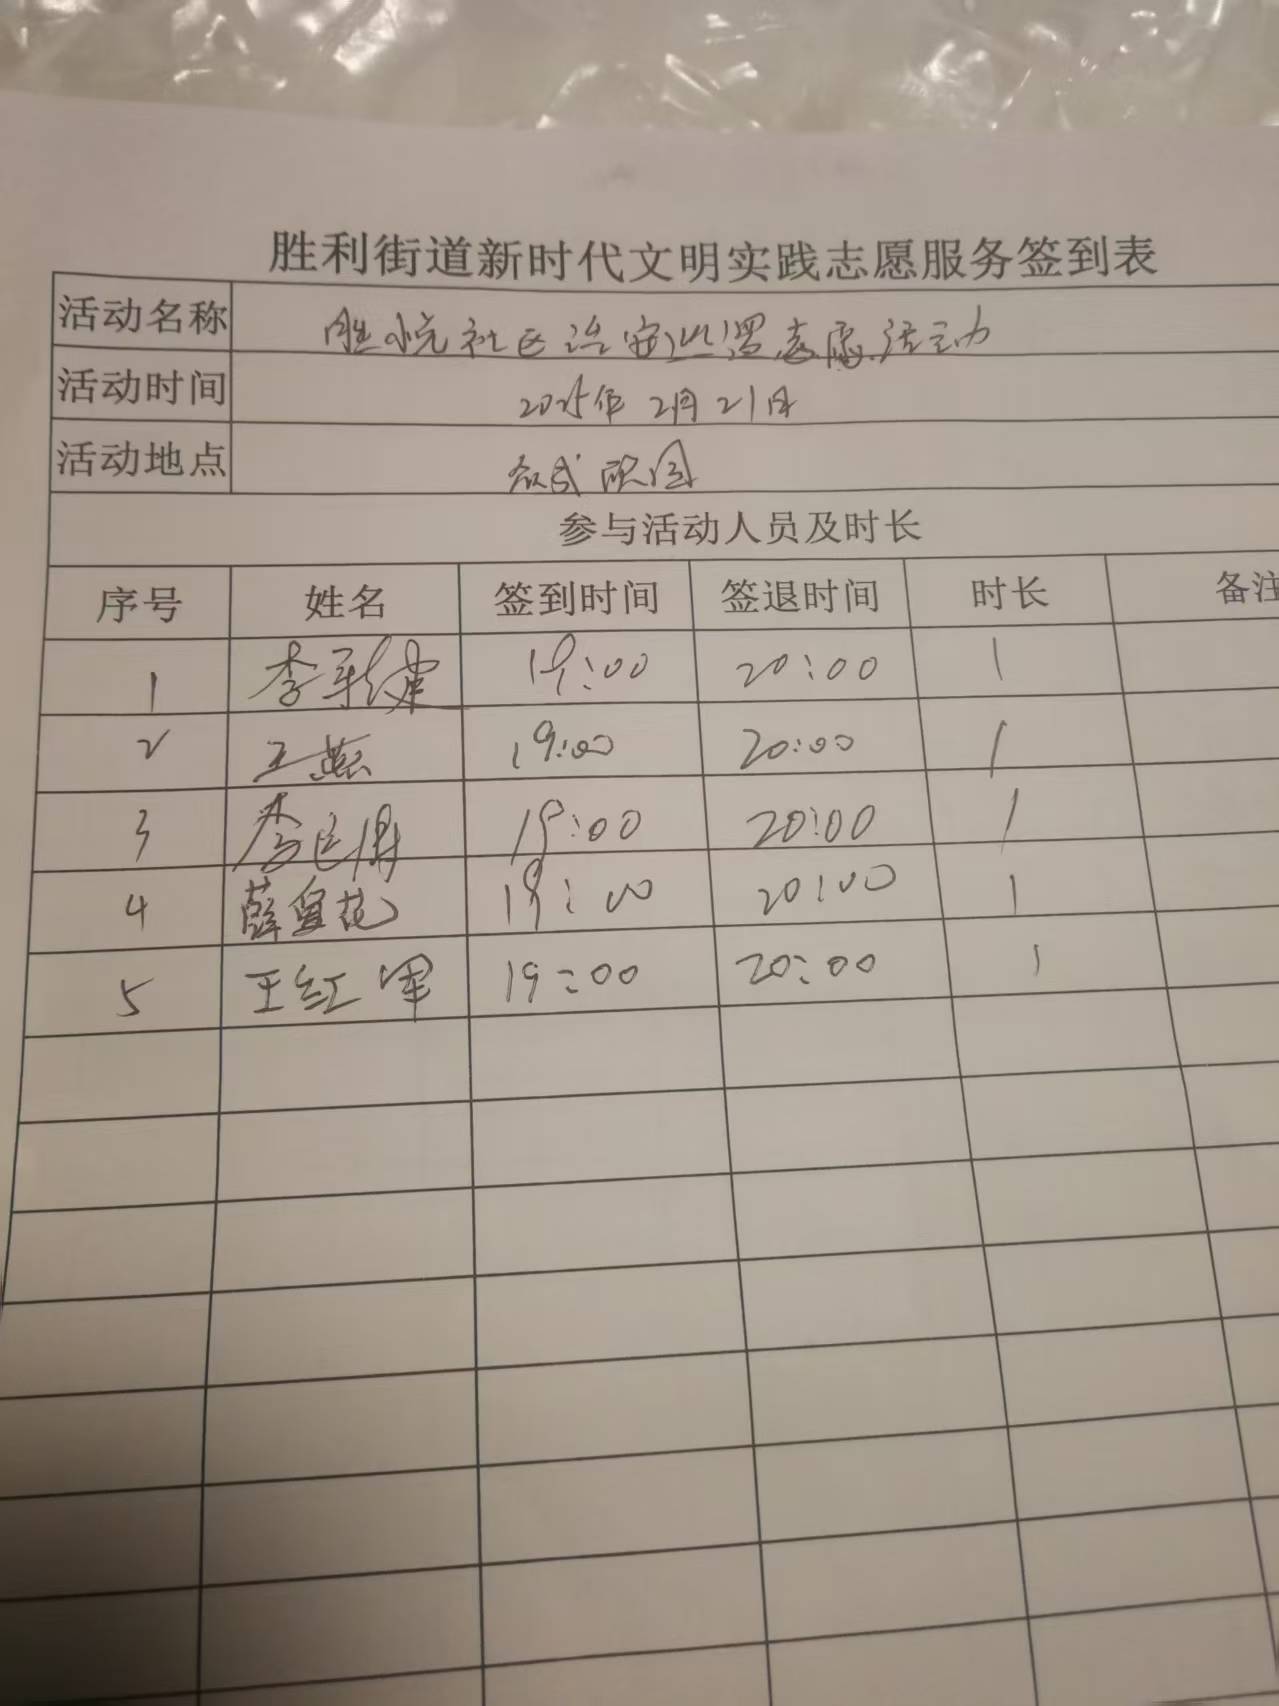 胜利街道新时代文明实践志愿服务签到表
活动名称 胜悦社区治安巡逻志愿活动
活动时间 2025年2月21日
活动地点
参与活动人员及时长
序号 姓名 签到时间 签退时间 时长 备注
1 李 健 19:00 20:00 1
2 王燕 19:00 20:00 1
3 李 19:00 20:00 1
4 薛曼花 19:00 20:00 1
5 王红军 19:00 20:00 1